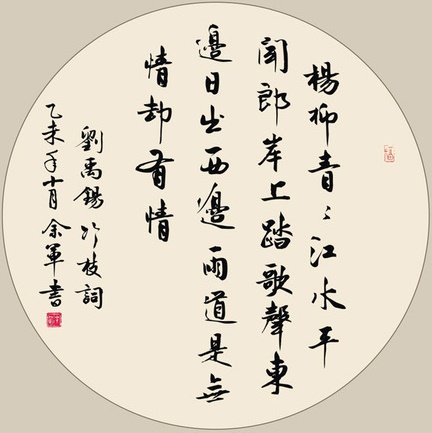 楊柳青〻江水平
聞郎岸上踏歌聲東
邊日出西邊雨道是無
情却有情
劉禹錫竹枝詞
乙未年十月余軍書